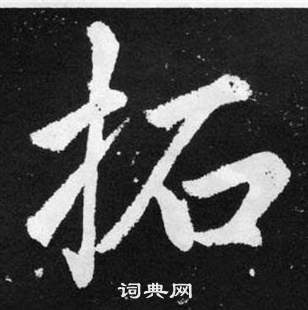 拓
词典网